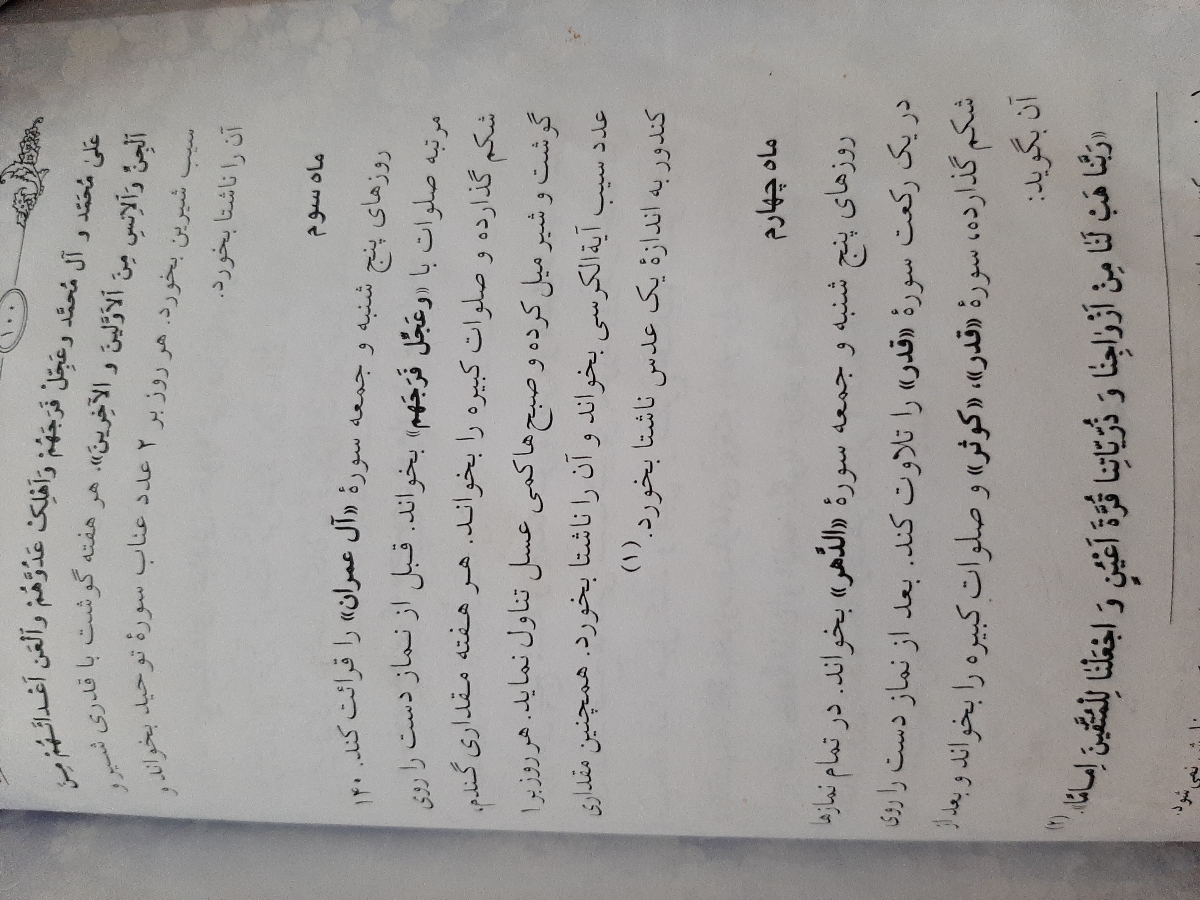 ۱۰۰
عَلیٰ مُحَمَّد و آل مُحمَّد وعَجِّلْ فَرَجَهُمْ وَاَهْلِکْ عَدُوَّهُمْ وَاَلْعَنْ اَعْدائَهُمْ مِنَ
اَلْجِنِّ وَاَلاِنْسِ مِنَ اَلاَوَّلینَ و الآخِرینَ». هر هفته گوشت با قدری شیر و
سیب شیرین بخورد. هر روز بر ۲ عدد عناب سورهٔ توحید بخواند و
آن را ناشتا بخورد.
ماه سوم
روزهای پنج شنبه و جمعه سورهٔ «آل عمران» را قرائت کند. ۱۴۰
مرتبه صلوات با «وعَجِّلْ فَرَجَهم» بخواند. قبل از نماز دست را روی
شکم گذارده و صلوات کبیره را بخواند. هر هفته مقداری گندم،
گوشت و شیر میل کرده و صبح ها کمی عسل تناول نماید. هر روز بر ۱
عدد سیب آیةالکرسی بخواند و آن را ناشتا بخورد. همچنین مقداری
کندور به اندازهٔ یک عدس ناشتا بخورد.(۱)
ماه چهارم
روزهای پنج شنبه و جمعه سورهٔ «الدَّهر» بخواند. در تمام نمازها
در یک رکعت سورهٔ «قدر» را تلاوت کند. بعد از نماز دست را روی
شکم گذارده، سورهٔ «قدر»، «کوثر» و صلوات کبیره را بخواند و بعد از
آن بگوید:
«رَبَّنَا هَبْ لَنَا مِنْ اَزْوَاجِنَا وَ ذُرِّیّاتِنا قُرَّةَ اَعْیُنٍ وَ اجْعَلْنٰا لِلْمُتَّقینَ اِمٰامًا».(۲)
نمی شود.